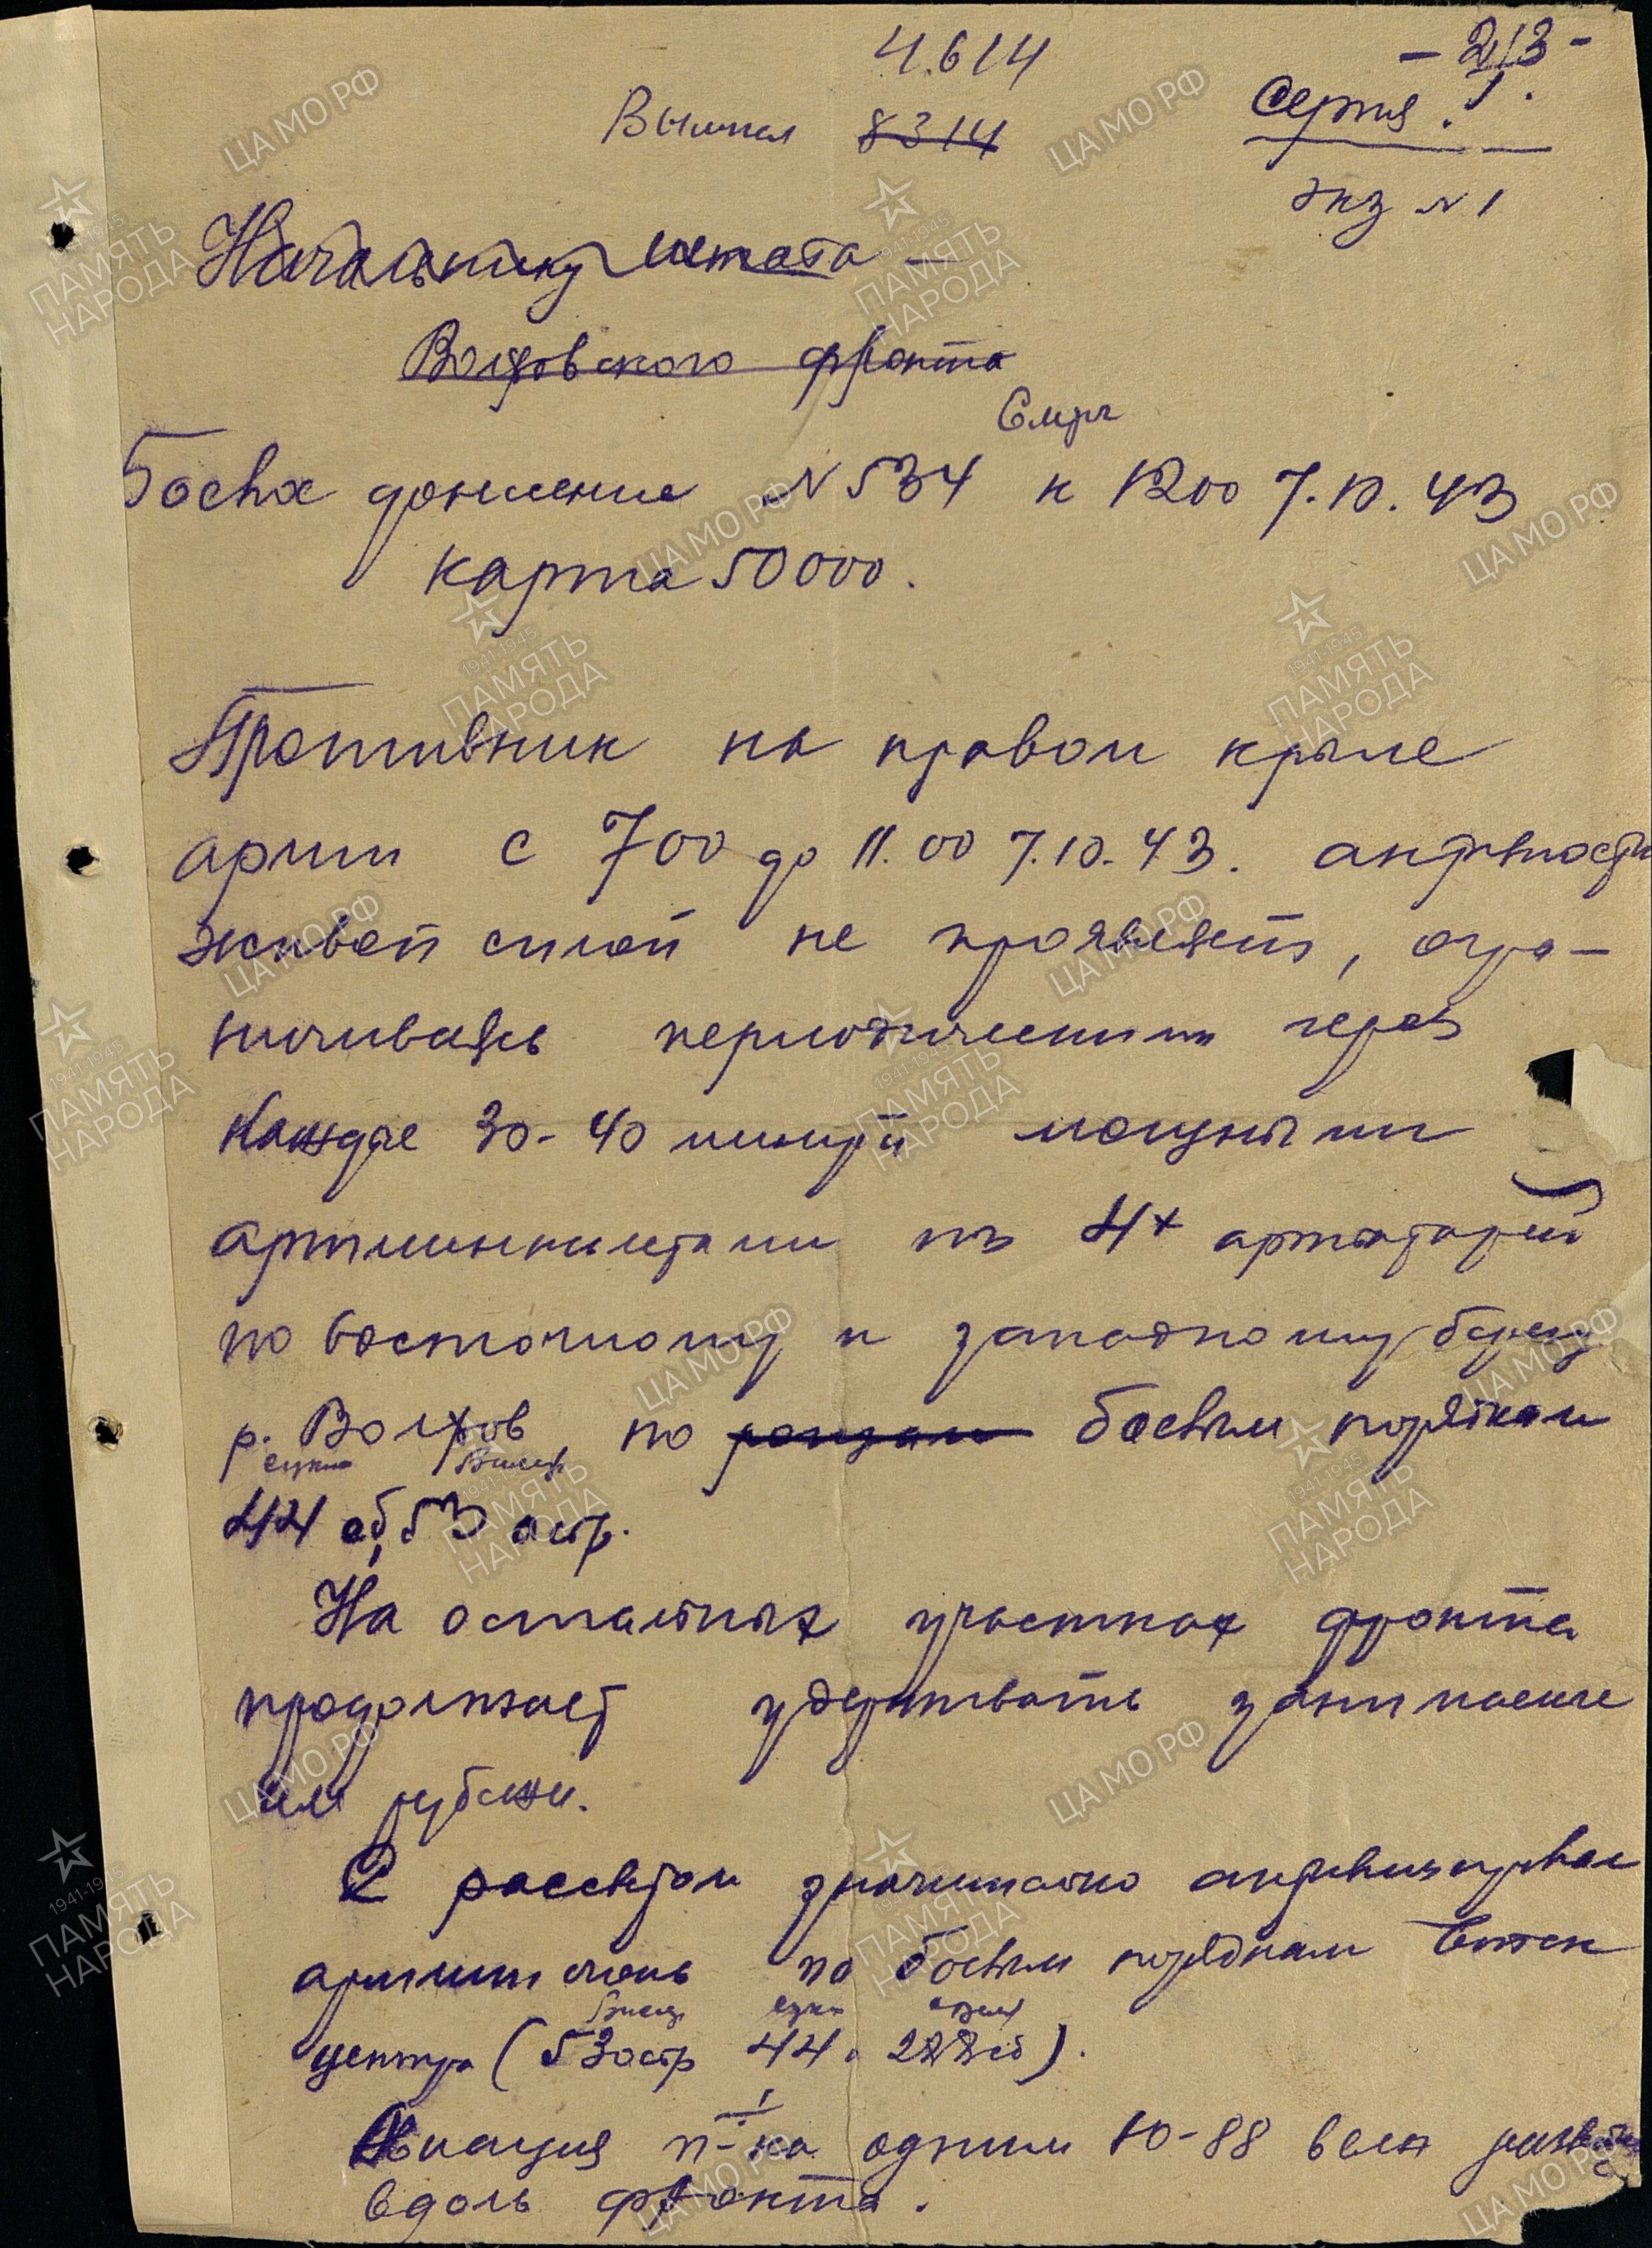 4614
- 213 -
Вымпел 8314
Серия I.
экз N 1
Начальнику штаба
Волховского фронта
Боевое донесение N 534 к 1200 7.10.43
карта 50000.
Противник на правом крыле
армии с 700 до 11.00 7.10.43. активности
живой силой не проявляет, огра-
ничиваясь периодическими через
каждые 30-40 минут мощными
артминналетами из 4х артбатарей
по восточному и западному берегу
р. Волхов по боевым порядкам
44 сб, 53 остр.
На остальных участках фронта
продолжает удерживать занимаемые
им рубежи.
С рассветом значительно активизировал
артминогонь по боевым порядкам войск
центра (53 остр 44. 288 сд).
Авиация п-ка одним Ю-88 вела разведку
вдоль фронта.
ЦАМО РФ
1941-1945
ПАМЯТЬ
НАРОДА